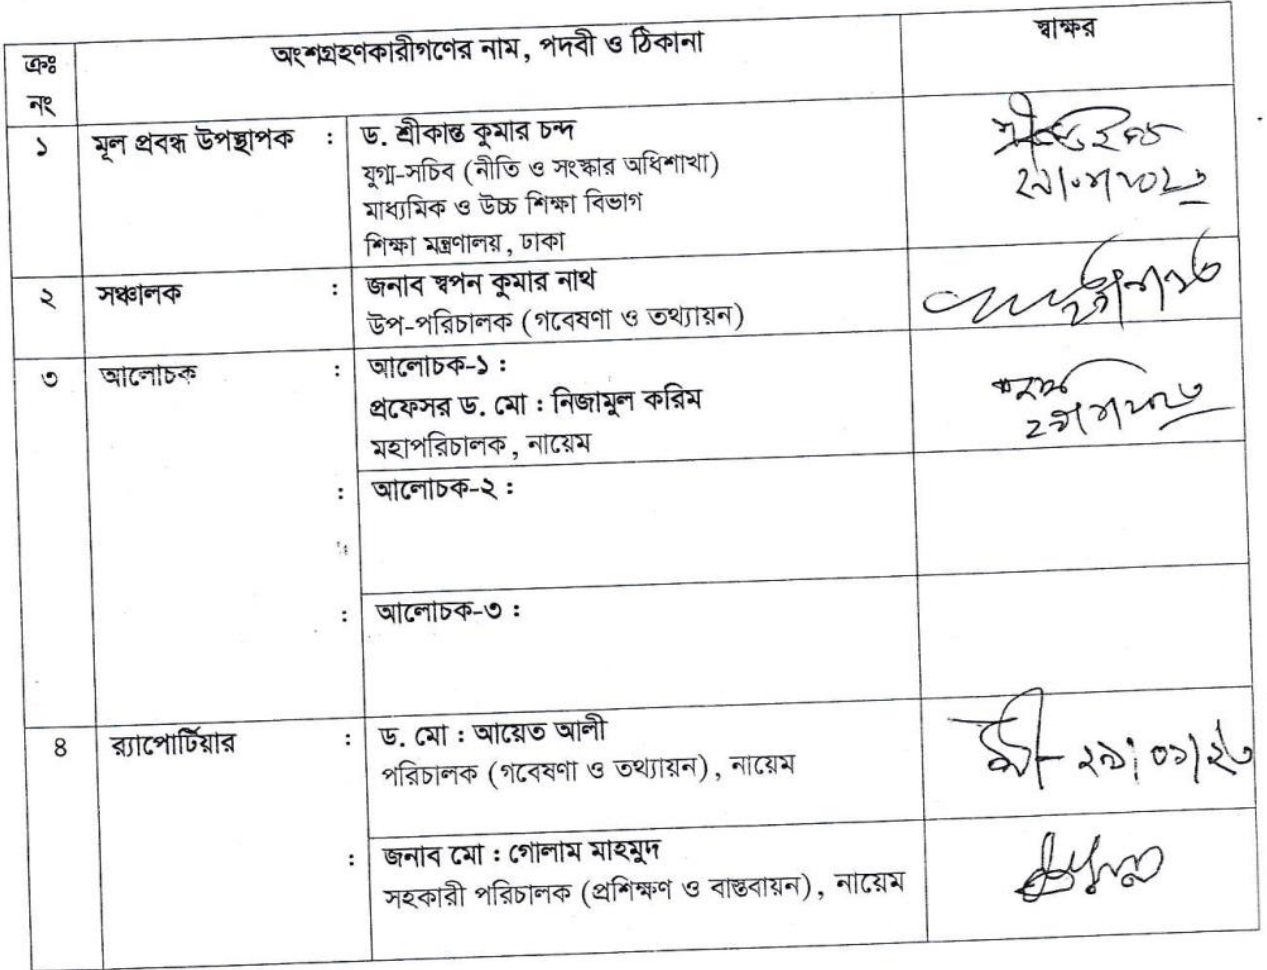 ক্রঃ
নং
অংশগ্রহণকারীগণের নাম, পদবী ও ঠিকানা
স্বাক্ষর
১
মূল প্রবন্ধ উপস্থাপক :
ড. শ্রীকান্ত কুমার চন্দ
যুগ্ম-সচিব (নীতি ও সংস্কার অধিশাখা)
মাধ্যমিক ও উচ্চ শিক্ষা বিভাগ
শিক্ষা মন্ত্রণালয়, ঢাকা
২
সঞ্চালক :
জনাব স্বপন কুমার নাথ
উপ-পরিচালক (গবেষণা ও তথ্যায়ন)
৩
আলোচক :
আলোচক-১ :
প্রফেসর ড. মো : নিজামুল করিম
মহাপরিচালক, নায়েম
:
আলোচক-২ :
:
আলোচক-৩ :
৪
র‍্যাপোর্টিয়ার :
ড. মো : আয়েত আলী
পরিচালক (গবেষণা ও তথ্যায়ন), নায়েম
২৯/০১/২৩
:
জনাব মো : গোলাম মাহমুদ
সহকারী পরিচালক (প্রশিক্ষণ ও বাস্তবায়ন), নায়েম